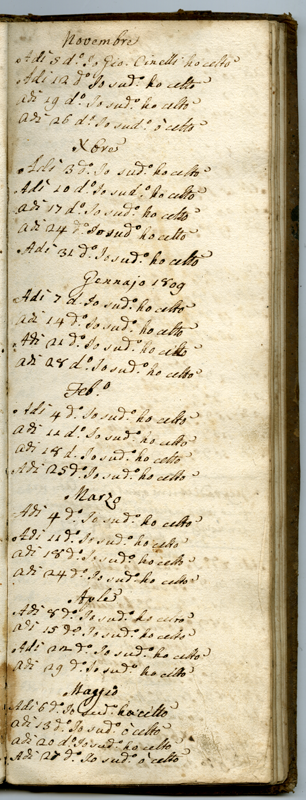 Novembre
Adi 5 d.º Io Gio. Cinelli ho celto
Adi 12 d.º Io sud.º ho celto
adi 19 d.º Io sud.º ho celto
adi 26 d.º Io sud.º ò celto
Xbre
Adi 3 d.º Io sud.º ho celto
Adi 10 d.º Io sud.º ho celto
adi 17 d.º Io sud.º ho celto
adi 24 d.º Io sud.º ho celto
Adi 31 d.º Io sud.º ho celto
Gennajo 1809
Adi 7 d. Io sud.º ho celto
adi 14 d.º Io sud.º ho celto
Adi 21 d.º Io sud.º ho celto
adi 28 d.º Io sud.º ho celto
Feb.º
Adi 4 d.º Io sud.º ho celto
adi 11 d.º Io sud.º ho celto
adi 18 d. Io sud.º ho celto
Adi 25 d.º Io sud.º ho celto
Marzo
Adi 4 d.º Io sud.º ho celto
Adi 11 d.º Io sud.º ho celto
adi 18 d.º Io sud.º ho celto
adi 24 d.º Io sud.º ho celto
Aple
Adi 8 d.º Io sud.º ho
adi 15 d.º Io sud.º ho celto
Adi 22 d.º Io sud.º ho celto
adi 29 d.º Io sud.º ho celto
Maggio
Adi 6 d.º Io sud.º ho celto
adi 13 d.º Io sud.º ò celto
adi 20 d.º Io sud.º ho celto
Adi 27 d.º Io sud.º ò celto